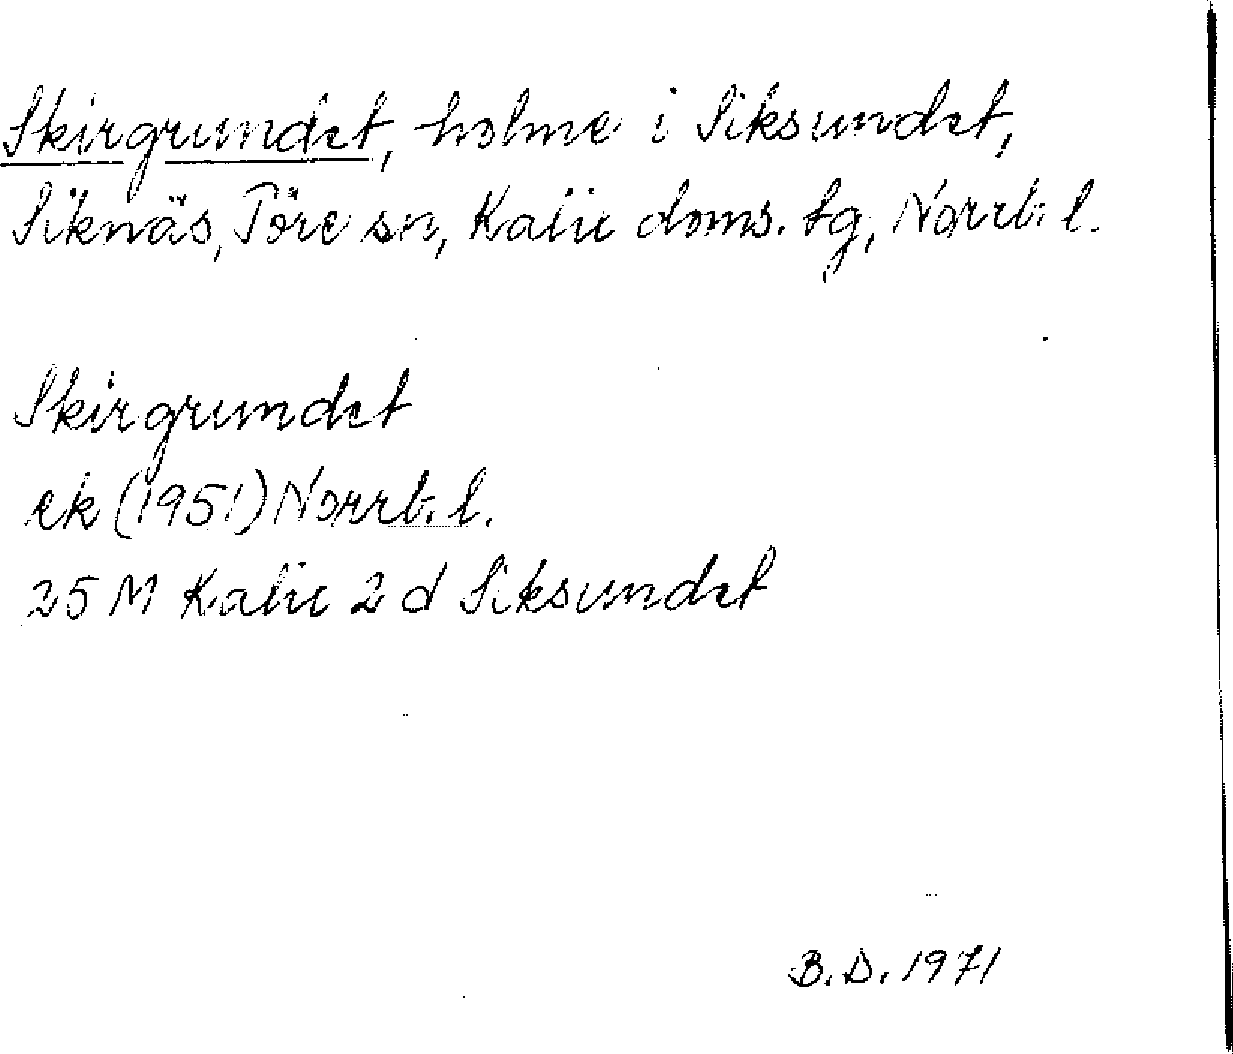 Skirgrundet, holme i Siksundet,
Siknäs, Töre sn, Kalix doms. tg, Norrb. l.
Skirgrundet
ek (1951) Norrb. l.
25 M Kalix 2 d Siksundet
B.D. 1971